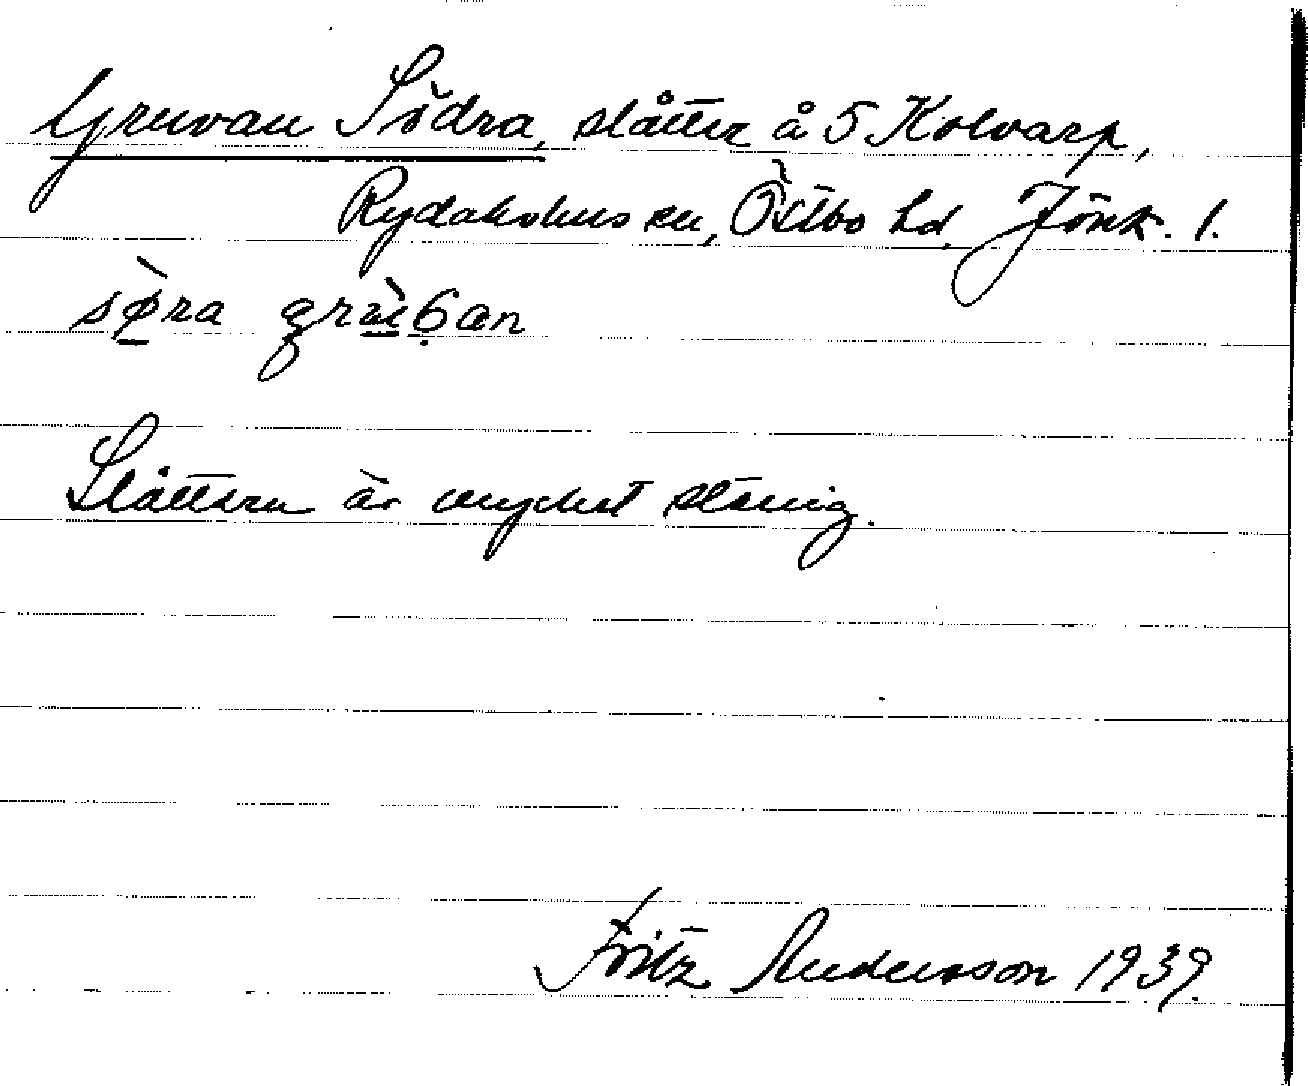 Gruvan Södra, slåtter å 5 Kolvarp,
Rydaholms sn, Östbo hd, Jönk. l.
sø̀ra
Slåttern är mycket stenig.
Fritz Andersson 1939.